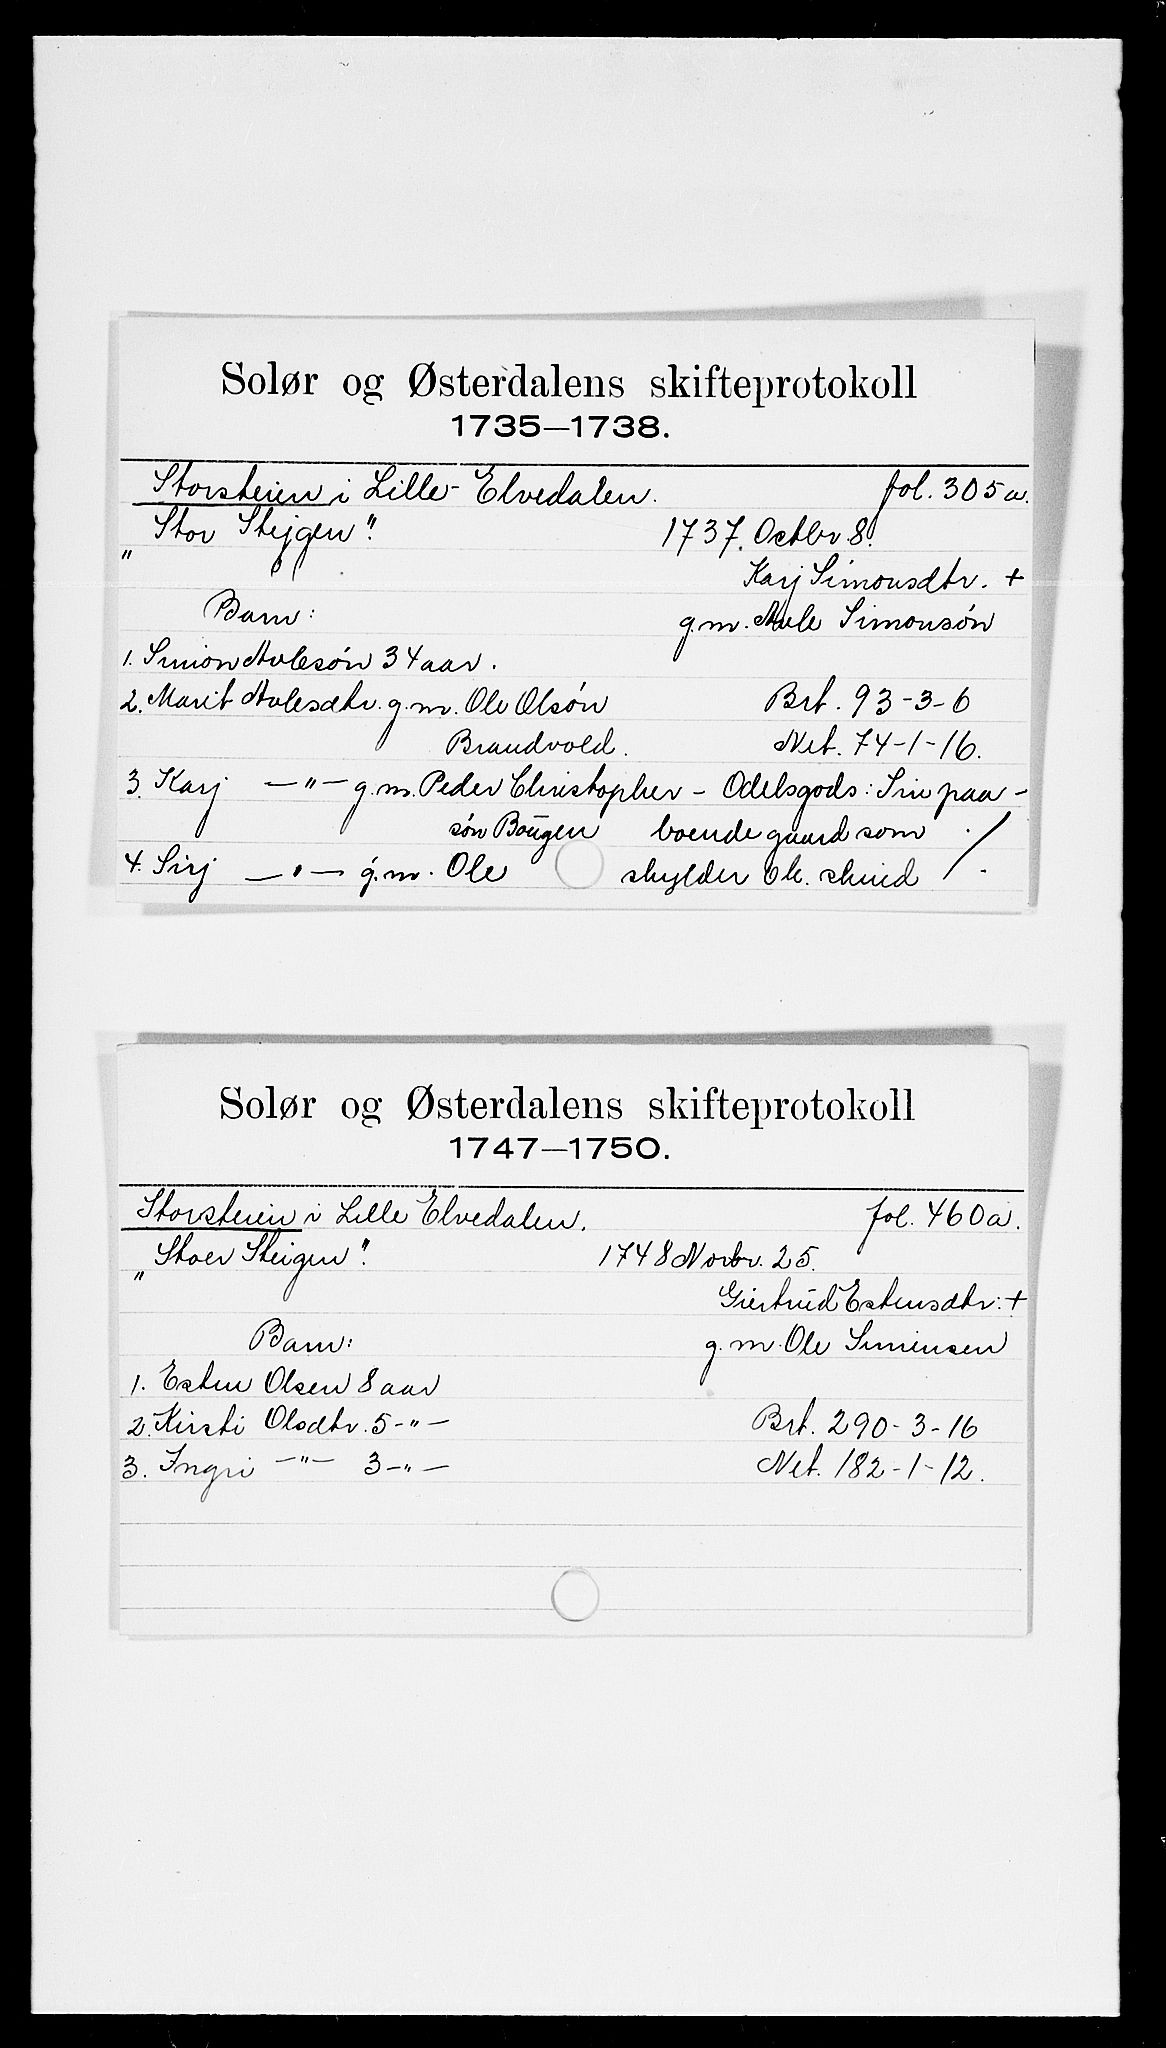 Solør og Østerdalens skifteprotokoll
1735—1738.
Storsteien i Lille-Elvedalen. fol. 305a.
„Stor Stejgen". 1737. Octbr. 8.
Karj Simonsdtr. +
Barn: g.m. Aale Simonsøn
1. Simon Aalesøn 34 aar.
2. Marit Aalesdtr. g.m. Ole Olsøn Brt. 93-3-6
Brandvold. Net. 74-1-16.
3. Karj —"— g.m. Peder Christopher- Odelsgods: Sin paa-
søn Boŭgen boende gaard som
4. Sirj —"— g.m. Ole skylder Ek. skind ./.
Solør og Østerdalens skifteprotokoll
1747—1750.
Storsteien i Lille Elvedalen. fol. 460a.
„Stoer Steigen". 1748 Novbr. 25.
Giertrud Estensdtr. +
Barn: g.m. Ole Simensen
1. Esten Olsen 8 aar
2. Kirsti Olsdtr. 5-"- Brt. 290-3-16
3. Ingri —"— 3-"- Net. 182-1-12.